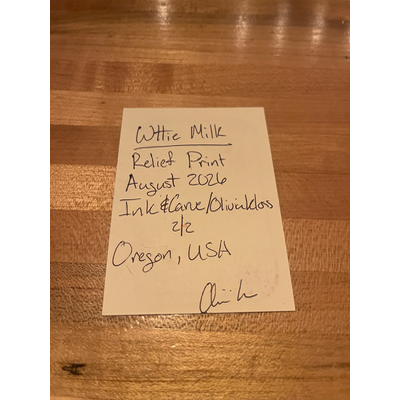 Wttie Milk
Relief Print
August 2026
Ink&Carve/Oliviakloss
2/2
Oregon, USA